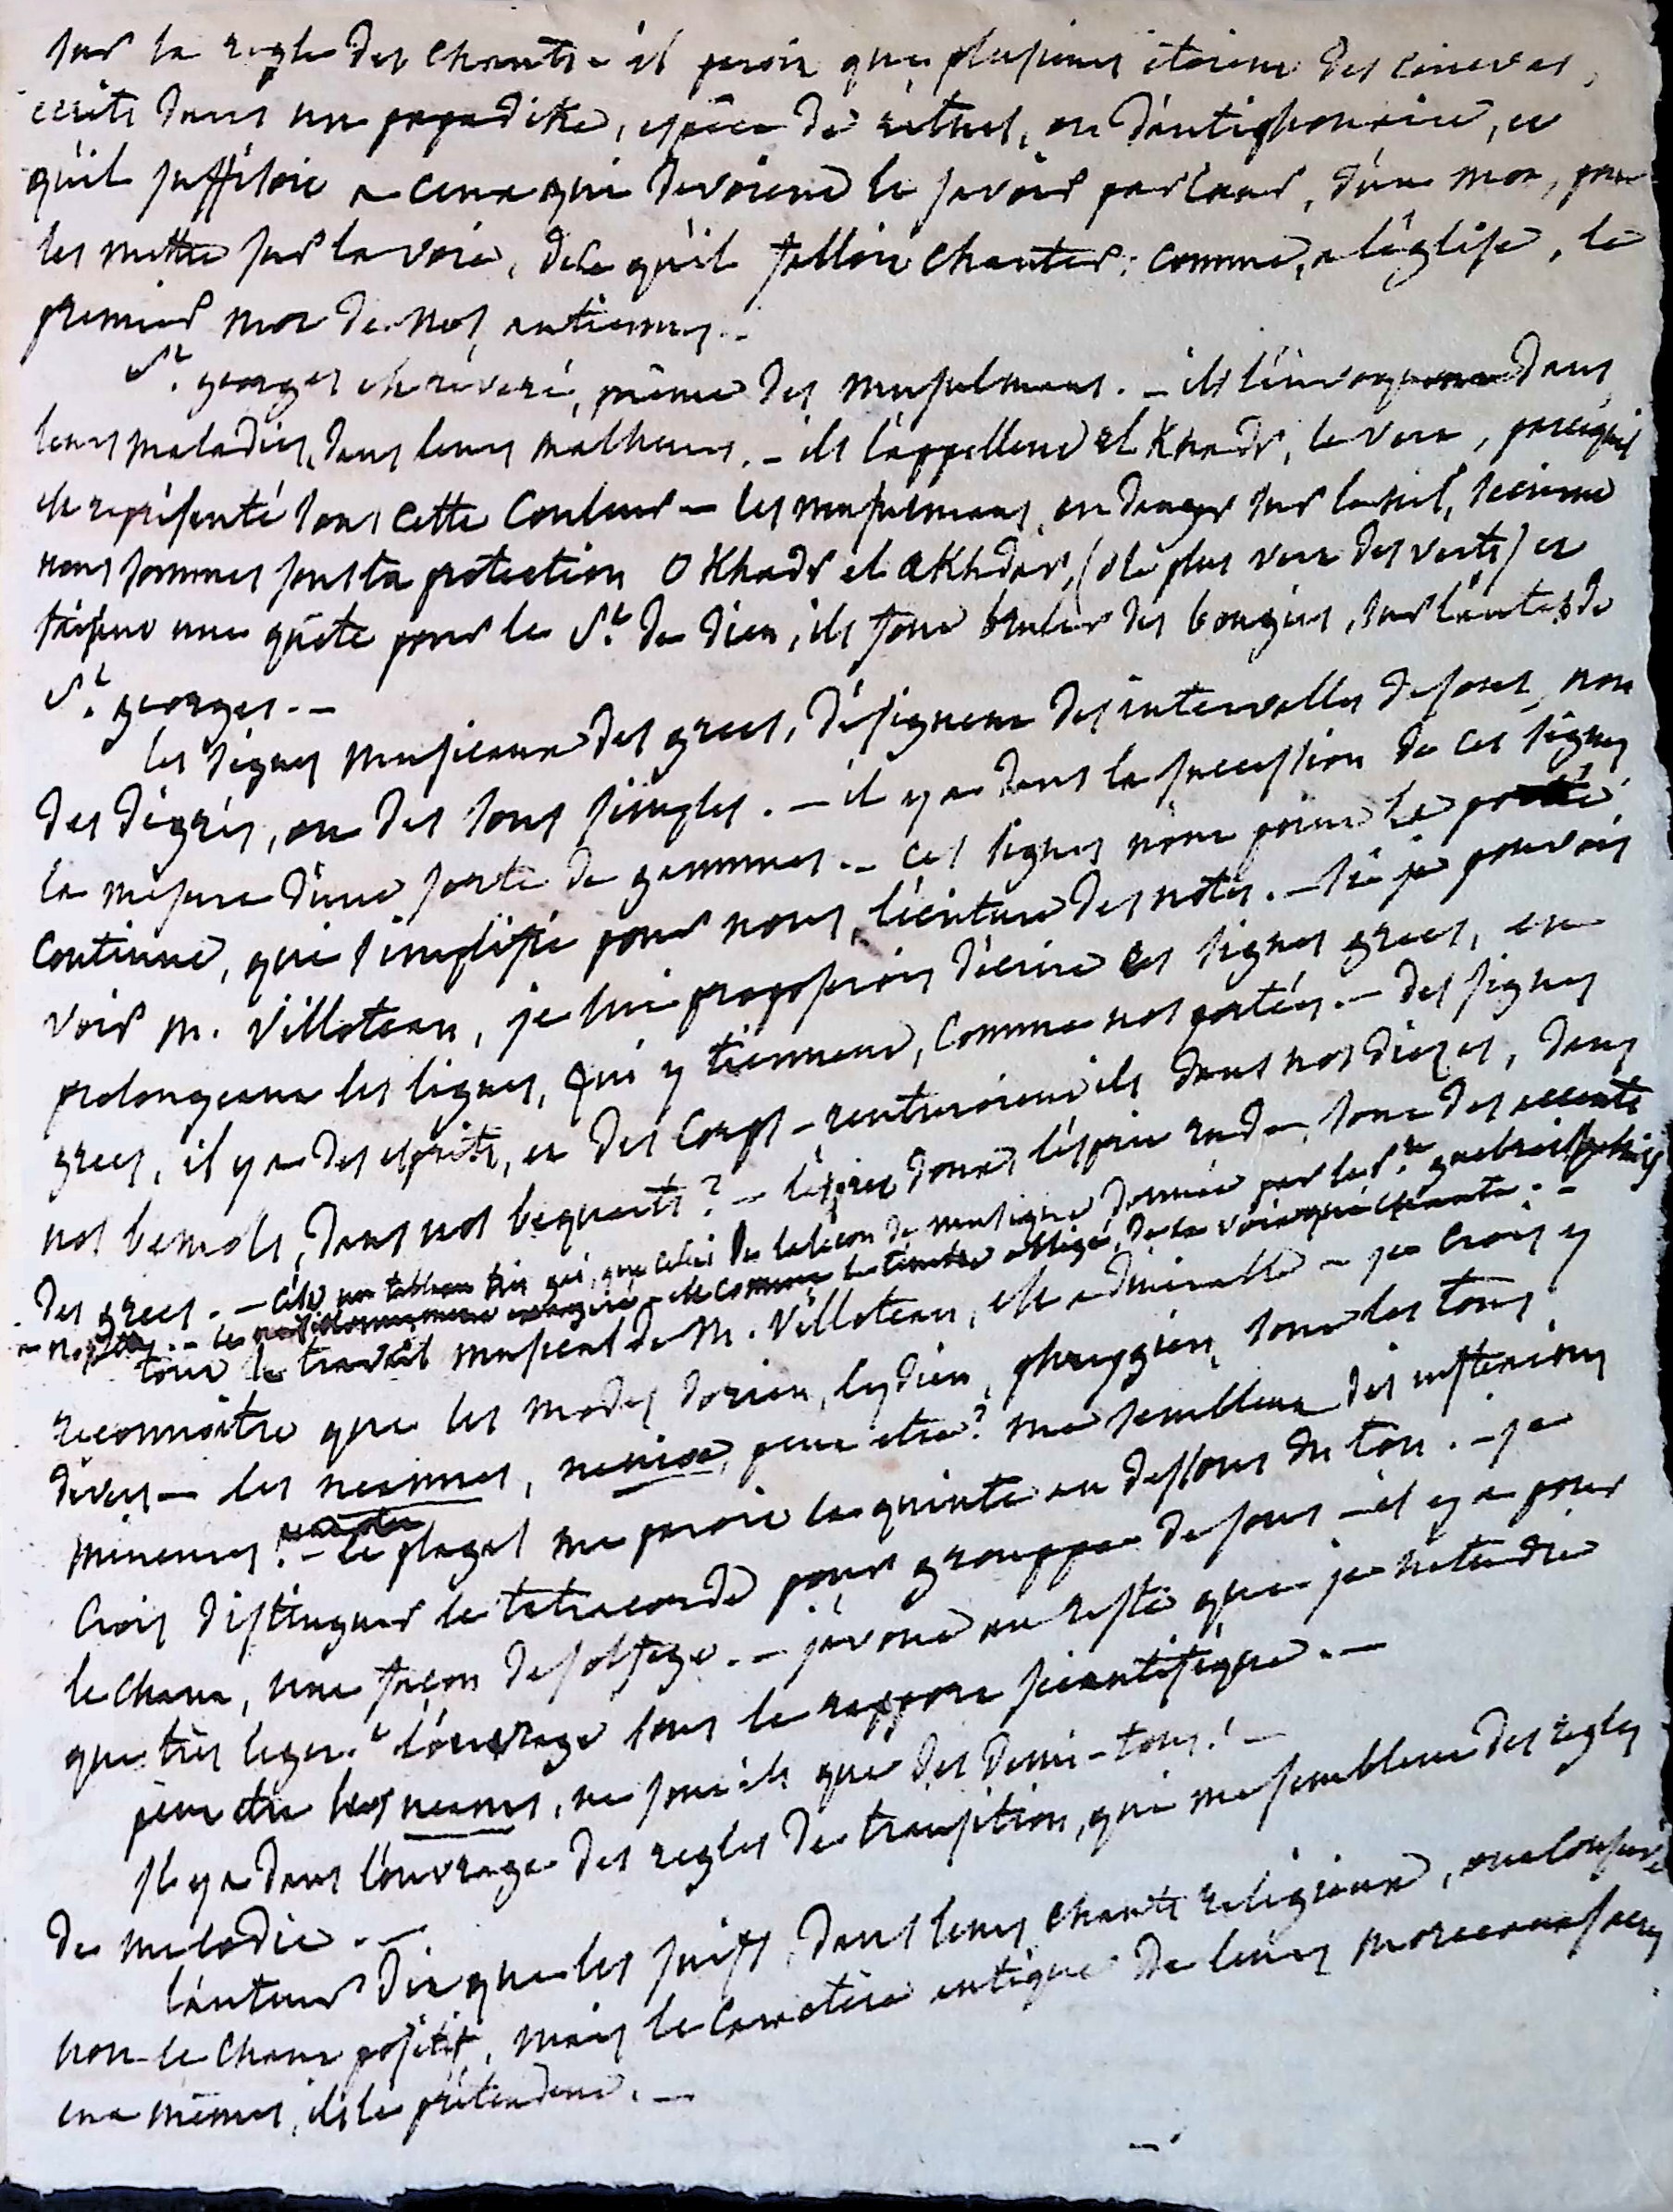 sur la regle des chants - il paroit que plusieurs étoient des canevas,
ecrits dans un papadike, espèce de rituel, ou d'antiphonaire, et
qu'il suffisoit a ceux qui devoient le savoir par cœur, d'un mot, pour
les mettre sur la voie, de ce qu'il falloit chanter; comme, a l'église, le
premier mot de nos antiennes. -
St. georges est révéré, même des musulmans. - ils l'invoquent dans
leurs maladies, dans leurs malheurs. - ils l'appellent el Khadr, le vert, parcequ'il
est représenté sous cette couleur - les musulmans, en danger sur le nil, s'écrient
nous sommes sous ta protection O Khadr el akhdar, (o le plus vert des verts) et
faisant une quête pour le St. de dieu, ils font bruler des bougies, sur l'autel de
St. georges. -
les signes musicaux des grecs, désignent des intervalles de sons, non
des dégrés, ou des sons simples. - il y a dans la succession de ces signes
la mesure d'une sorte de gammes. - ces signes n'ont point la portée
continue, qui simplifie pour nous, l'écriture des notes. - si je pouvois
voir m. Villoteau, je lui proposerois d'écrire les signes grecs, en
prolongeant les lignes, qui y tiennent, comme nos portées. - des signes
grecs, il y a des esprits, et des corps - rentreroient ils dans nos diezes, dans
nos bemols, dans nos bequarts? - l'esprit doux l'esprit rude, sont des accents
des grecs. - c'est un tableau très gai, que celui de la leçon de musique, donnée par le
- le nasillonnement exagéré - est comme le timbre obligé, de la voix qui chante. -
tout le travail musical de M. Villoteau, est admirable - je crois y
reconnoitre que les modes dorien, lydien, phrygien, sont les tons
divers - les neannes, nenisa, peut etre? me semblent des
mineures? - le plagal me paroit la quinte au dessous du ton. - je
crois distinguer le tetracorde pour grouppe de sons - il y a pour
le chant, une façon de solfege. - j'avoue au reste que je n'etudie
que très leger.t l'ouvrage sous le rapport scientifique. -
peut etre les neanes, ne sont ils que des demi-tons! -
Il y a dans l'ouvrage des regles de transition, qui me semblent des regles
de melodie. -
l'auteur dit que les juifs, dans leurs chants religieux, ont conservé
non le chant positif, mais le caractère antique de leurs morceaux sacrés
eux mêmes, ils le prétendent. -